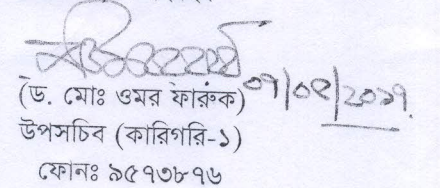 (ড. মোঃ ওমর ফারুক) ০৭/০৫/২০১৭
উপসচিব (কারিগরি-১)
ফোনঃ ৯৫৭৩৮৭৬